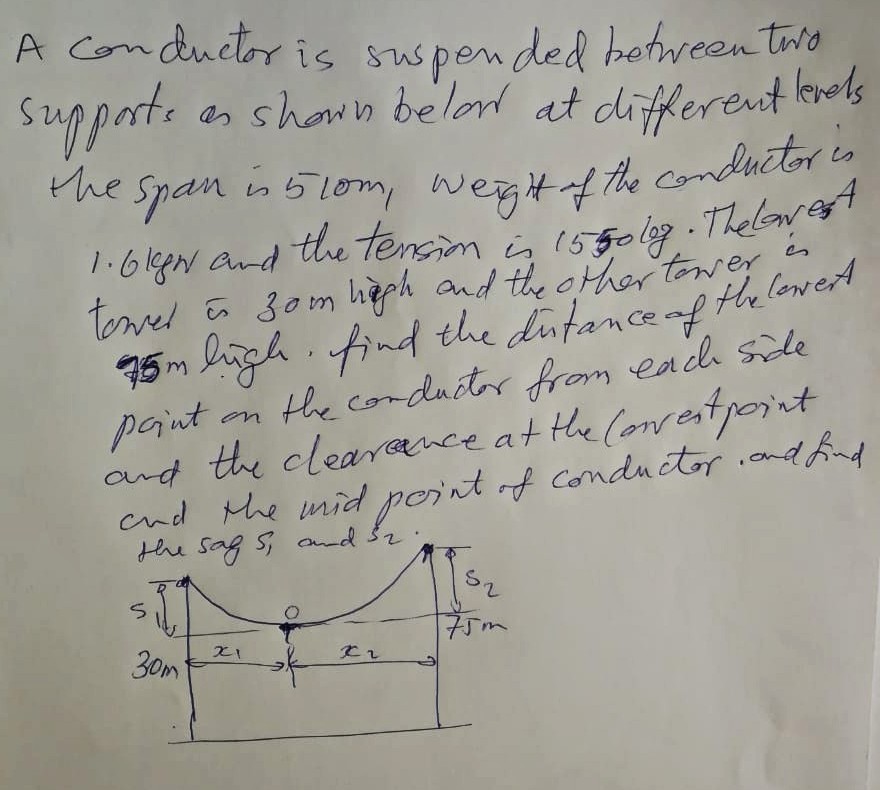 A conductor is suspended between two
supports as shown below at different levels
the span is 510m, weight of the conductor is
1.6kgw and the tension is 1550kg. The lowest
tower is 30m high and the other tower is
75m high. find the distance of the lowest
point on the conductor from each side
and the clearance at the lowest point
and the mid point of conductor. and find
the sag S1 and S2.
S1
O
S2
75m
30m
x1
x2